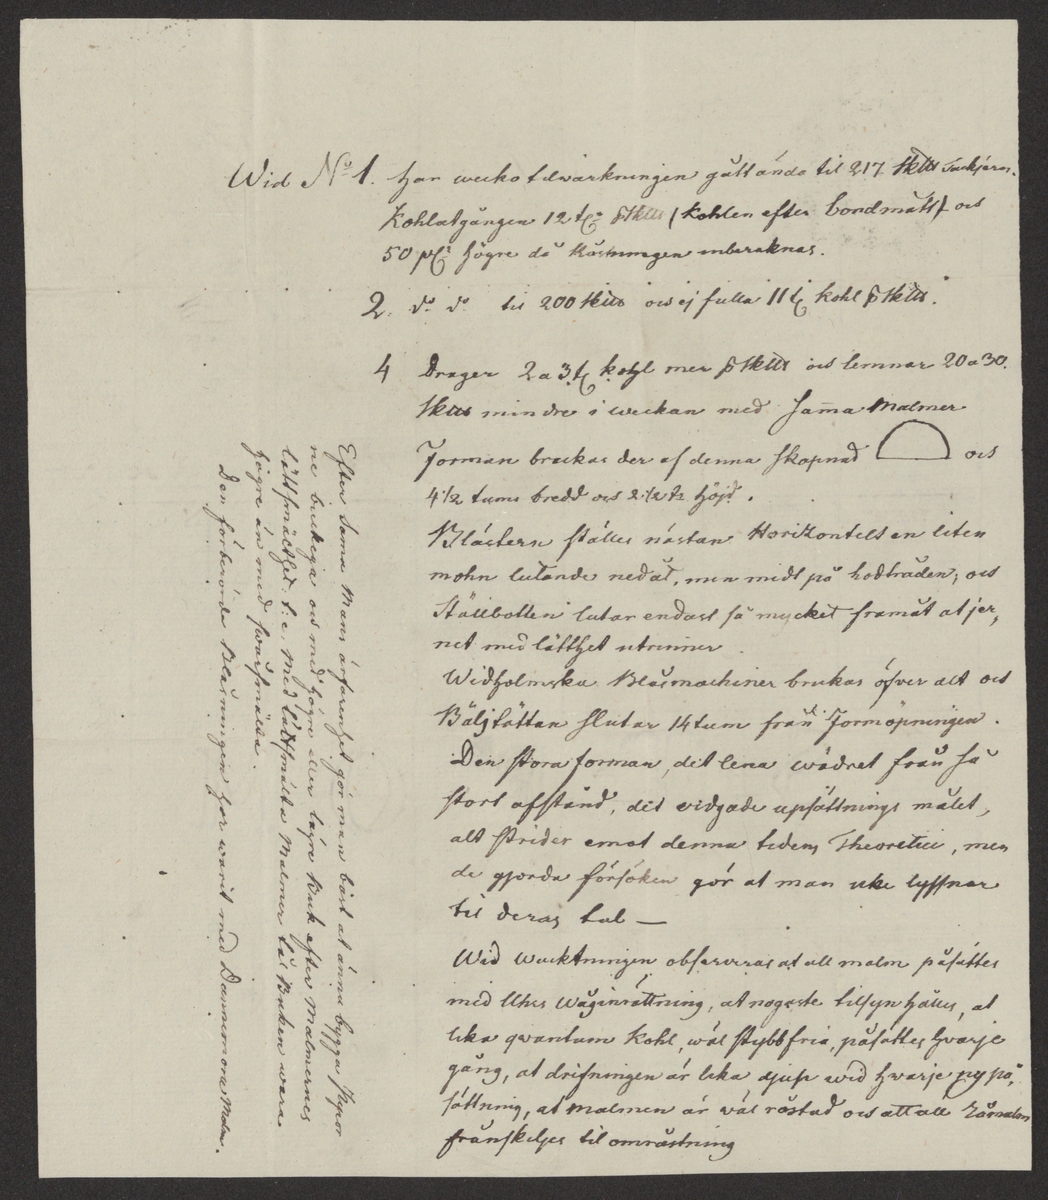 Wid No 1. har wecko tilwärkningen gått ända til 217 Skttd Tackjern.
Kohlåtgången 12 t:r p Skttd / kohlen efter bondmått / och
50 pC:t högre då Röstningen inberäknas.
2. do do til 200 Skttd och ej fulla 11 t:r kohl p Skttd.
4 Drager 2 a 3 t:r kohl mer p Skttd och lemnar 20 a 30
Skttd mindre i weckan med samma Malmer
Forman brukas der af denna skapnad och
4 1/2 tums bredd och 2 1/2 ts höjd.
Blästern ställes nästan Horizontelt en liten
mohn lutande nedåt, men midt på
Ställbotten lutar endast så mycket framåt at jer-
net med lätthet utrinner.
Widholmska Blåsmachiner brukas öfver alt och
Bälgtättan slutar 14 tum från Formöpningen.
Den stora forman, det lena wädret från så
stort afstånd, det vidgade upsättnings målet,
alt strider emot denna tidens Theoretici, men
de gjorda försöken gör at man icke lyssnar
til deras tal —
Wid observeras at all malm påsättes
med Uhrs wåginrättning, at nogaste tilsyn hålles, at
lika qvantum Kohl, wäl stybbfria, påsättes hvarje
gång, at drifningen är lika djup wid hwarje ny på-
sättning, at Malmen är wäl röstad och att all Råmalm
frånskiljes til omröstning
Efter sama Mans ärfarenhet gör man bäst at ännu bygga Pipor
ne bukiga och med högre eller lägre Buk efter Malmernes
lättsmälthet t:e. Med lättsmälta Malmer bör Buken wara
högre än med swårsmälta.
Den förberörda Blåsningen har warit med Dannemora Malm.